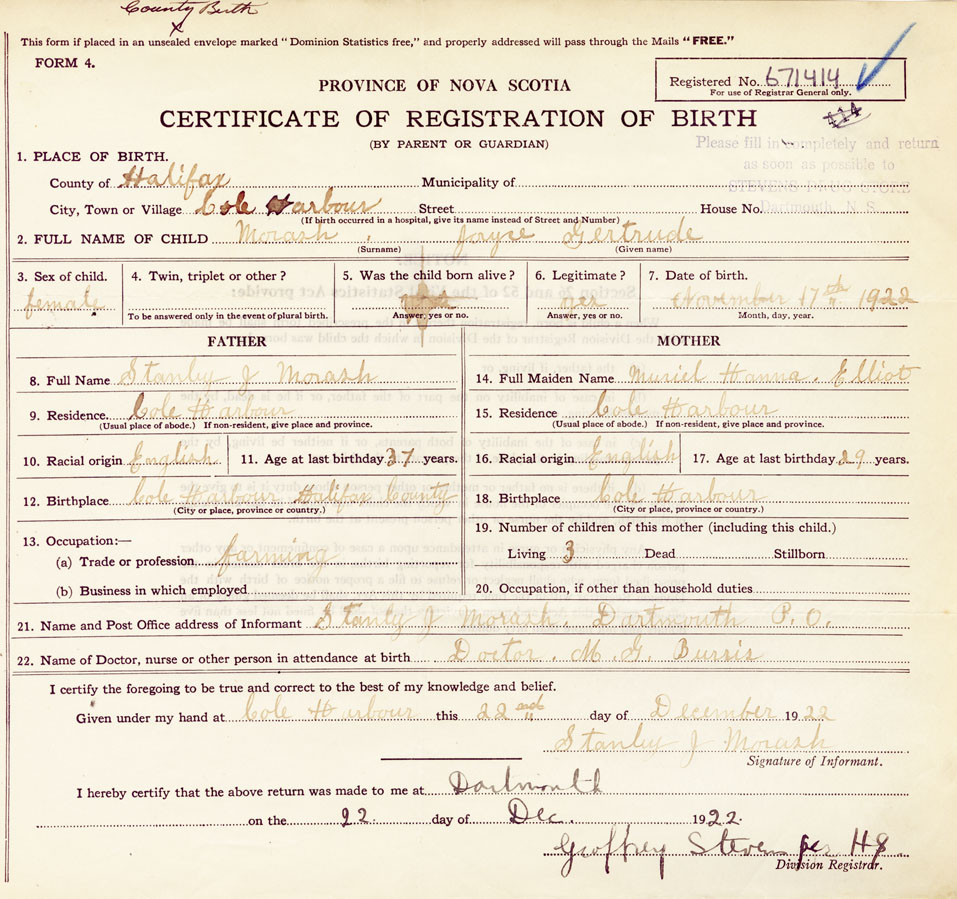 County Birth
x
This form if placed in an unsealed envelope marked "Dominion Statistics free," and properly addressed will pass through the Mails "FREE."
FORM 4.
Registered No. 671414
For use of Registrar General only.
PROVINCE OF NOVA SCOTIA
414
CERTIFICATE OF REGISTRATION OF BIRTH
(BY PARENT OR GUARDIAN)
Please fill in completely and return
as soon as possible to
STEVENS DRUG STORE
Dartmouth, N. S.
1. PLACE OF BIRTH.
County of Halifax Municipality of
City, Town or Village Cole Harbour Street House No.
(If birth occurred in a hospital, give its name instead of Street and Number)
2. FULL NAME OF CHILD Morash, Joyce Gertrude
(Surname) (Given name)
3. Sex of child. 4. Twin, triplet or other? 5. Was the child born alive? 6. Legitimate? 7. Date of birth.
female yes November 17th 1922
To be answered only in the event of plural birth. Answer, yes or no. Answer, yes or no. Month, day, year.
FATHER MOTHER
8. Full Name Stanley J Morash 14. Full Maiden Name Muriel Hanna. Elliot
9. Residence. Cole Harbour 15. Residence Cole Harbour
(Usual place of abode.) If non-resident, give place and province. (Usual place of abode.) If non-resident, give place and province.
10. Racial origin English 11. Age at last birthday 37 years. 16. Racial origin English 17. Age at last birthday 29 years.
12. Birthplace Cole Harbour Halifax County 18. Birthplace Cole Harbour
(City or place, province or country.) (City or place, province or country.)
13. Occupation:— 19. Number of children of this mother (including this child.)
(a) Trade or profession farming Living 3 Dead Stillborn
(b) Business in which employed 20. Occupation, if other than household duties
21. Name and Post Office address of Informant Stanly J Morash. Dartmouth P. O.
22. Name of Doctor, nurse or other person in attendance at birth Doctor. M. G. Burris
I certify the foregoing to be true and correct to the best of my knowledge and belief.
Given under my hand at Cole Harbour this 22nd day of December 1922
Stanley J Morash
Signature of Informant.
I hereby certify that the above return was made to me at Dartmouth
on the 22 day of Dec. 1922.
Geoffrey Stevens per HG
Division Registrar.